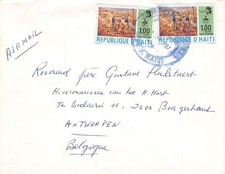 1.00 1.00
REPUBLIQUE D'HAITI REPUBLIQUE D'HAITI
AIR MAIL
Reverend Père Gustaaf Hulstaert
Missionarissen van het H. Hart
Te Boelaerlei 11 - 2200 Borgerhout
ANTWERPEN
Belgique